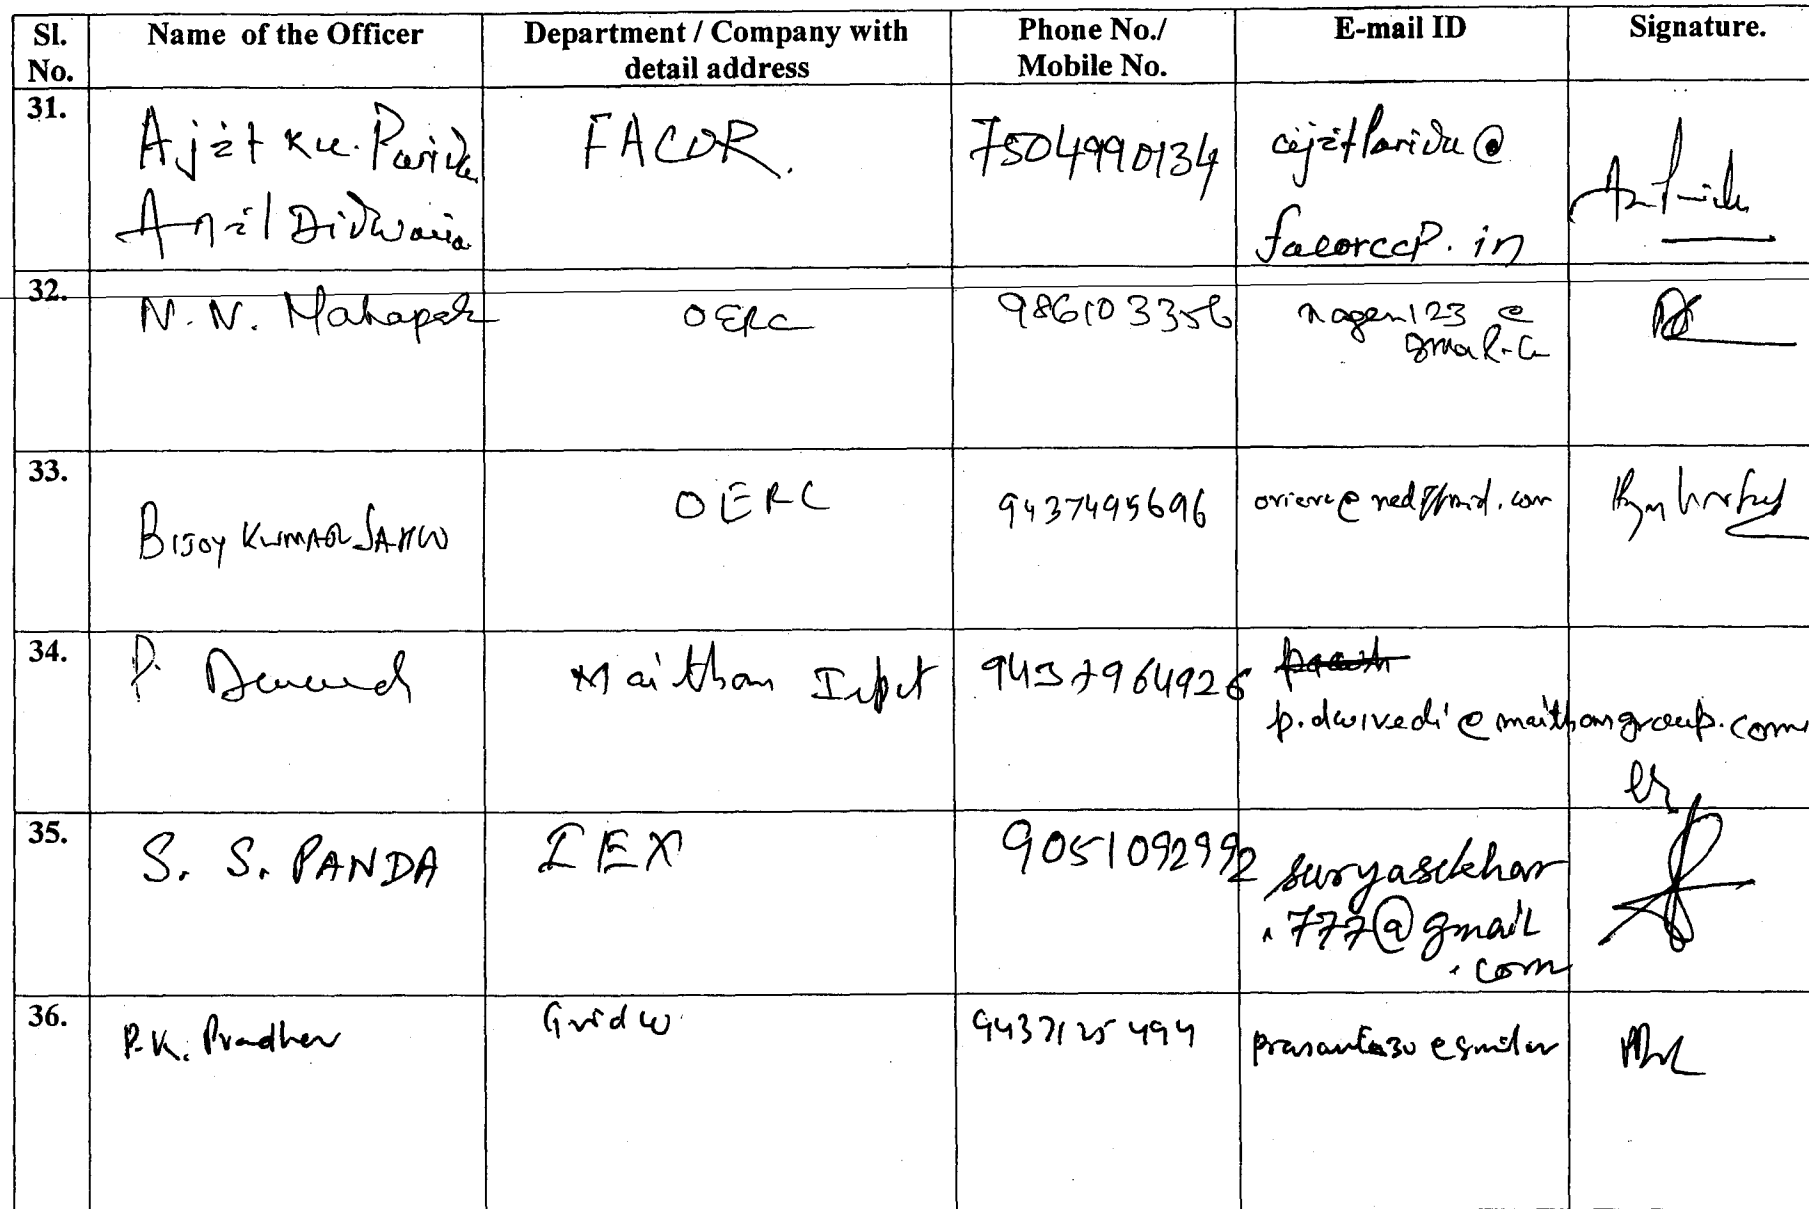 Sl. No. Name of the Officer Department / Company with detail address Phone No./ Mobile No. E-mail ID Signature.
31. Ajit Ku. Parida FACOR. 7504990134 ajitparida@
Anil Didwania facorccp.in
32. N. N. Mahapatra OERC 9861033356 nagen123@
gmail.com
33. BIJOY KUMAR SAHU OERC 9437495696
34. P. Maithan Ispat 9437964926
p.dwivedi@maithangroup.com
35. S. S. PANDA IEX 9051092992 suryasekhar
.777@gmail
.com
36. P.K. Pradhan Gridco 9437125494